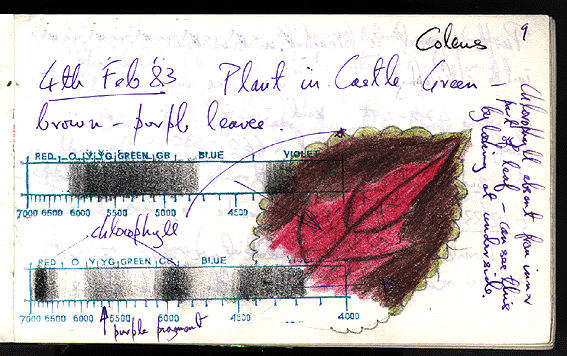 Coleus
9
4th Feb 83 Plant in Castle Green -
brown - purple leaves.
Chlorophyll absent from inner
part of leaf - can see this
by looking at underside.
RED O Y YG GREEN GB BLUE VIOLET
7000 6500 6000 5500 5000 4500
chlorophyll
RED O Y YG GREEN GB BLUE VIOLET
7000 6500 6000 5500 5000 4500 4000
purple pigment